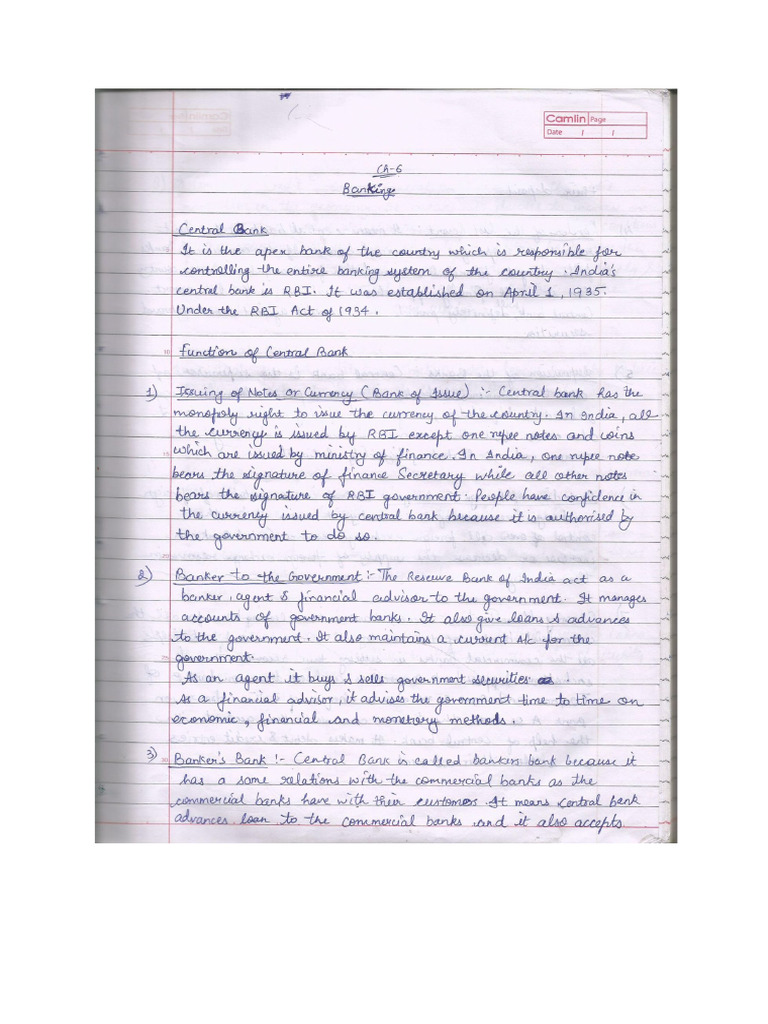 Camlin Page
Date / /
Ch-6
Banking
Central Bank
It is the apex bank of the country which is responsible for
controlling the entire banking system of the country. India's
central bank is RBI. It was established on April 1, 1935.
Under the RBI Act of 1934.
Function of Central Bank
1) Issuing of Notes or Currency (Bank of Issue) :- Central bank has the
monopoly right to issue the currency of the country. In India, all
the currency is issued by RBI except one rupee notes and coins
which are issued by ministry of finance. In India, one rupee note
bears the signature of finance Secretary while all other notes
bears the signature of RBI government. People have confidence in
the currency issued by central bank because it is authorised by
the government to do so.
2) Banker to the Government :- The Reserve Bank of India act as a
banker, agent & financial advisor to the government. It manages
accounts of government banks. It also give loans & advances
to the government. It also maintains a current a/c for the
government.
As an agent it buys & sells government securities.
As a financial advisor, it advises the government time to time on
economic, financial and monetary methods.
3) Banker's Bank :- Central Bank is called bankers bank because it
has a same relations with the commercial banks as the
commercial banks have with their customer. It means central bank
advances loan to the commercial banks and it also accepts